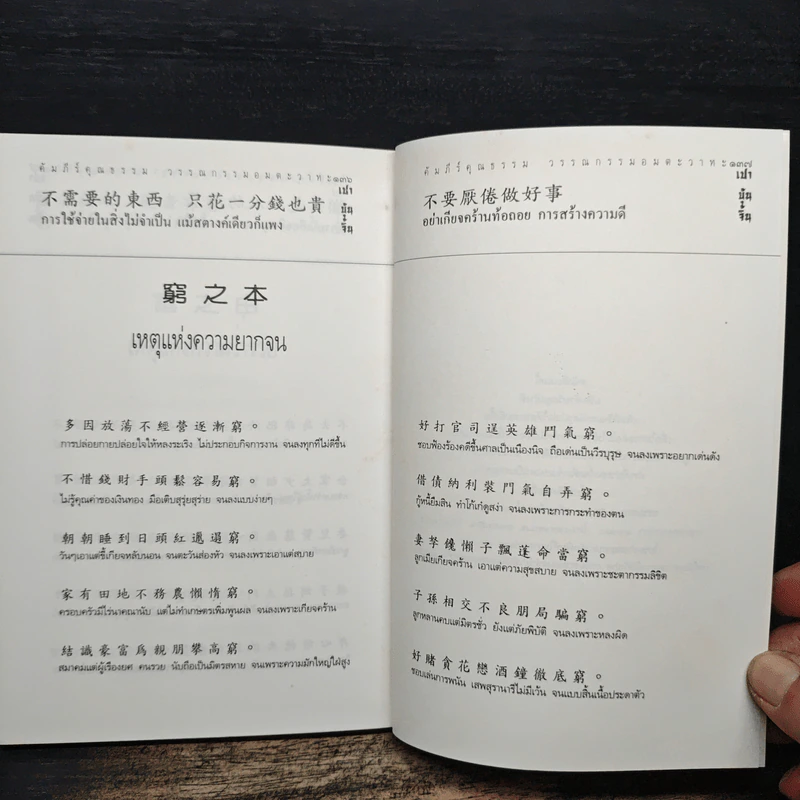 คัมภีร์คุณธรรม วรรณกรรมอมตะวาทะ ๑๓๖
เปา
บุ้น
จิ้น
不需要的東西 只花一分錢也貴
การใช้จ่ายในสิ่งไม่จำเป็น แม้สตางค์เดียวก็แพง
窮之本
เหตุแห่งความยากจน
多因放蕩不經營逐漸窮。
การปล่อยกายปล่อยใจให้หลงระเริง ไม่ประกอบกิจการงาน จนลงทุกทีไม่ดีขึ้น
不惜錢財手頭鬆容易窮。
ไม่รู้คุณค่าของเงินทอง มือเติบสุรุ่ยสุร่าย จนลงแบบง่ายๆ
朝朝睡到日頭紅邋遢窮。
วันๆเอาแต่ขี้เกียจหลับนอน จนตะวันส่องหัว จนลงเพราะเอาแต่สบาย
家有田地不務農懶惰窮。
ครอบครัวมีไร่นาคณานับ แต่ไม่ทำเกษตรเพิ่มพูนผล จนลงเพราะเกียจคร้าน
結識豪富為親朋攀高窮。
สมาคมแต่ผู้เรืองยศ คนรวย นับถือเป็นมิตรสหาย จนเพราะความมักใหญ่ใฝ่สูง
คัมภีร์คุณธรรม วรรณกรรมอมตะวาทะ ๑๓๗
เปา
บุ้น
จิ้น
不要厭倦做好事
อย่าเกียจคร้านท้อถอย การสร้างความดี
好打官司逞英雄鬥氣窮。
ชอบฟ้องร้องคดีขึ้นศาลเป็นเนืองนิจ ถือเด่นเป็นวีรบุรุษ จนลงเพราะอยากเด่นดัง
借債納利裝鬥氣自弄窮。
กู้หนี้ยืมสิน ทำโก้เก๋ดูสง่า จนลงเพราะการกระทำของตน
妻孥饞懶子飄蓬命當窮。
ลูกเมียเกียจคร้าน เอาแต่ความสุขสบาย จนลงเพราะชะตากรรมลิขิต
子孫相交不良朋局騙窮。
ลูกหลานคบแต่มิตรชั่ว ยังแต่ภัยพิบัติ จนลงเพราะหลงผิด
好賭貪花戀酒鐘徹底窮。
ชอบเล่นการพนัน เสพสุรานารีไม่มีเว้น จนแบบสิ้นเนื้อประดาตัว